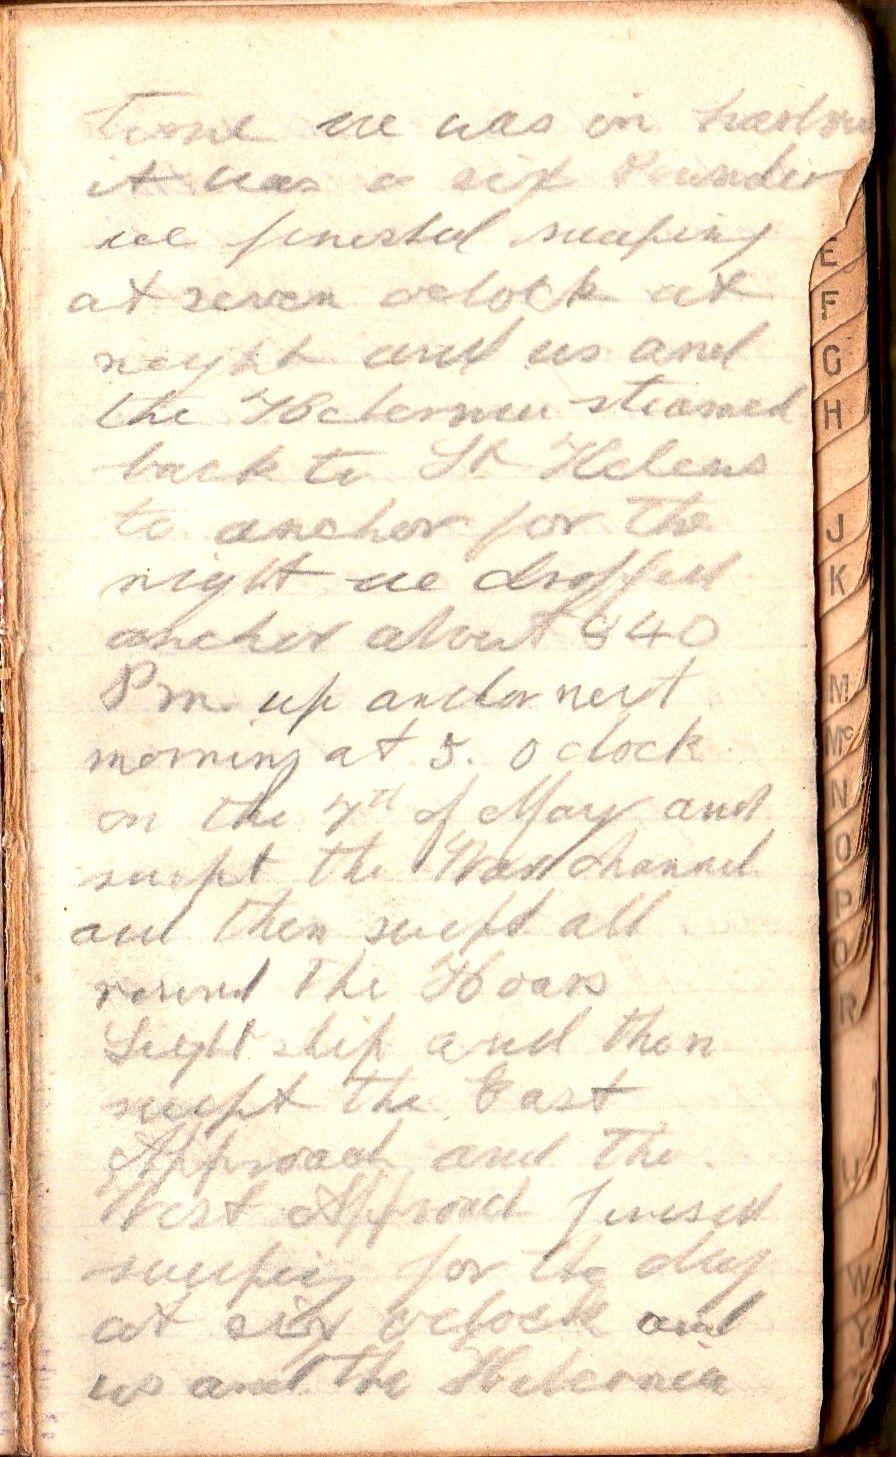 time we was in harbour
it was a six Pounder
we finished sweeping
at seven oclock at
neight and us and
the Hibernia steamed
back to St Helens
to anchor for the
night we dropped
ancher about 840
Pm. up anchor next
morning at 5. o clock
on the 7th of May and
swept the War channel
and then swept all
round the Hoars
Light ship and then
swept the East
Approach and the
West Approach finised
sweeping for the day
at six oclock and
us and the Hibernia
E
F
G
H
J
K
M
Mc
N
O
P
Q
R
U
W
Y